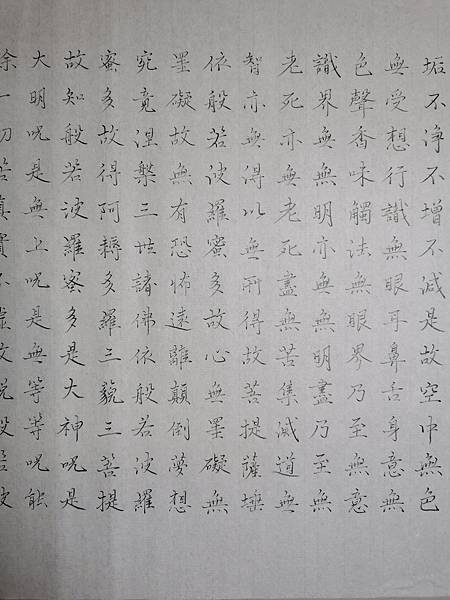 垢不淨不增不減是故空中無色
無受想行識無眼耳鼻舌身意無
色聲香味觸法無眼界乃至無意
識界無無明亦無無明盡乃至無
老死亦無老死盡無苦集滅道無
智亦無得以無所得故菩提薩埵
依般若波羅蜜多故心無罣礙無
罣礙故無有恐怖遠離顛倒夢想
究竟涅槃三世諸佛依般若波羅
蜜多故得阿耨多羅三藐三菩提
故知般若波羅蜜多是大神呪是
大明呪是無上呪是無等等呪能
除一切苦真實不虛故說般若波